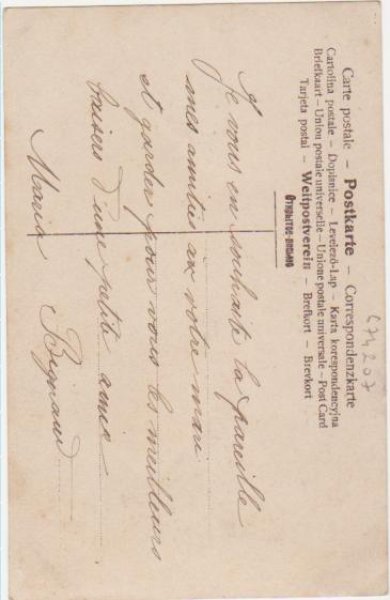 Carte postale – Postkarte – Correspondenzkarte
Cartolina postale – Dopisnice – Levelező-Lap – Karta korespondencyjna
Briefkaart – Union postale universelle – Unione postale universale – Post Card
Tarjeta postal – Weltpostverein – Brefkort – Brevkort
Открытое-письмо
674207
Je vous en souhaite la pareille
mes amitiés au votre mari
et garder pour vous les meilleurs
baisers d'une petit amie
Maria